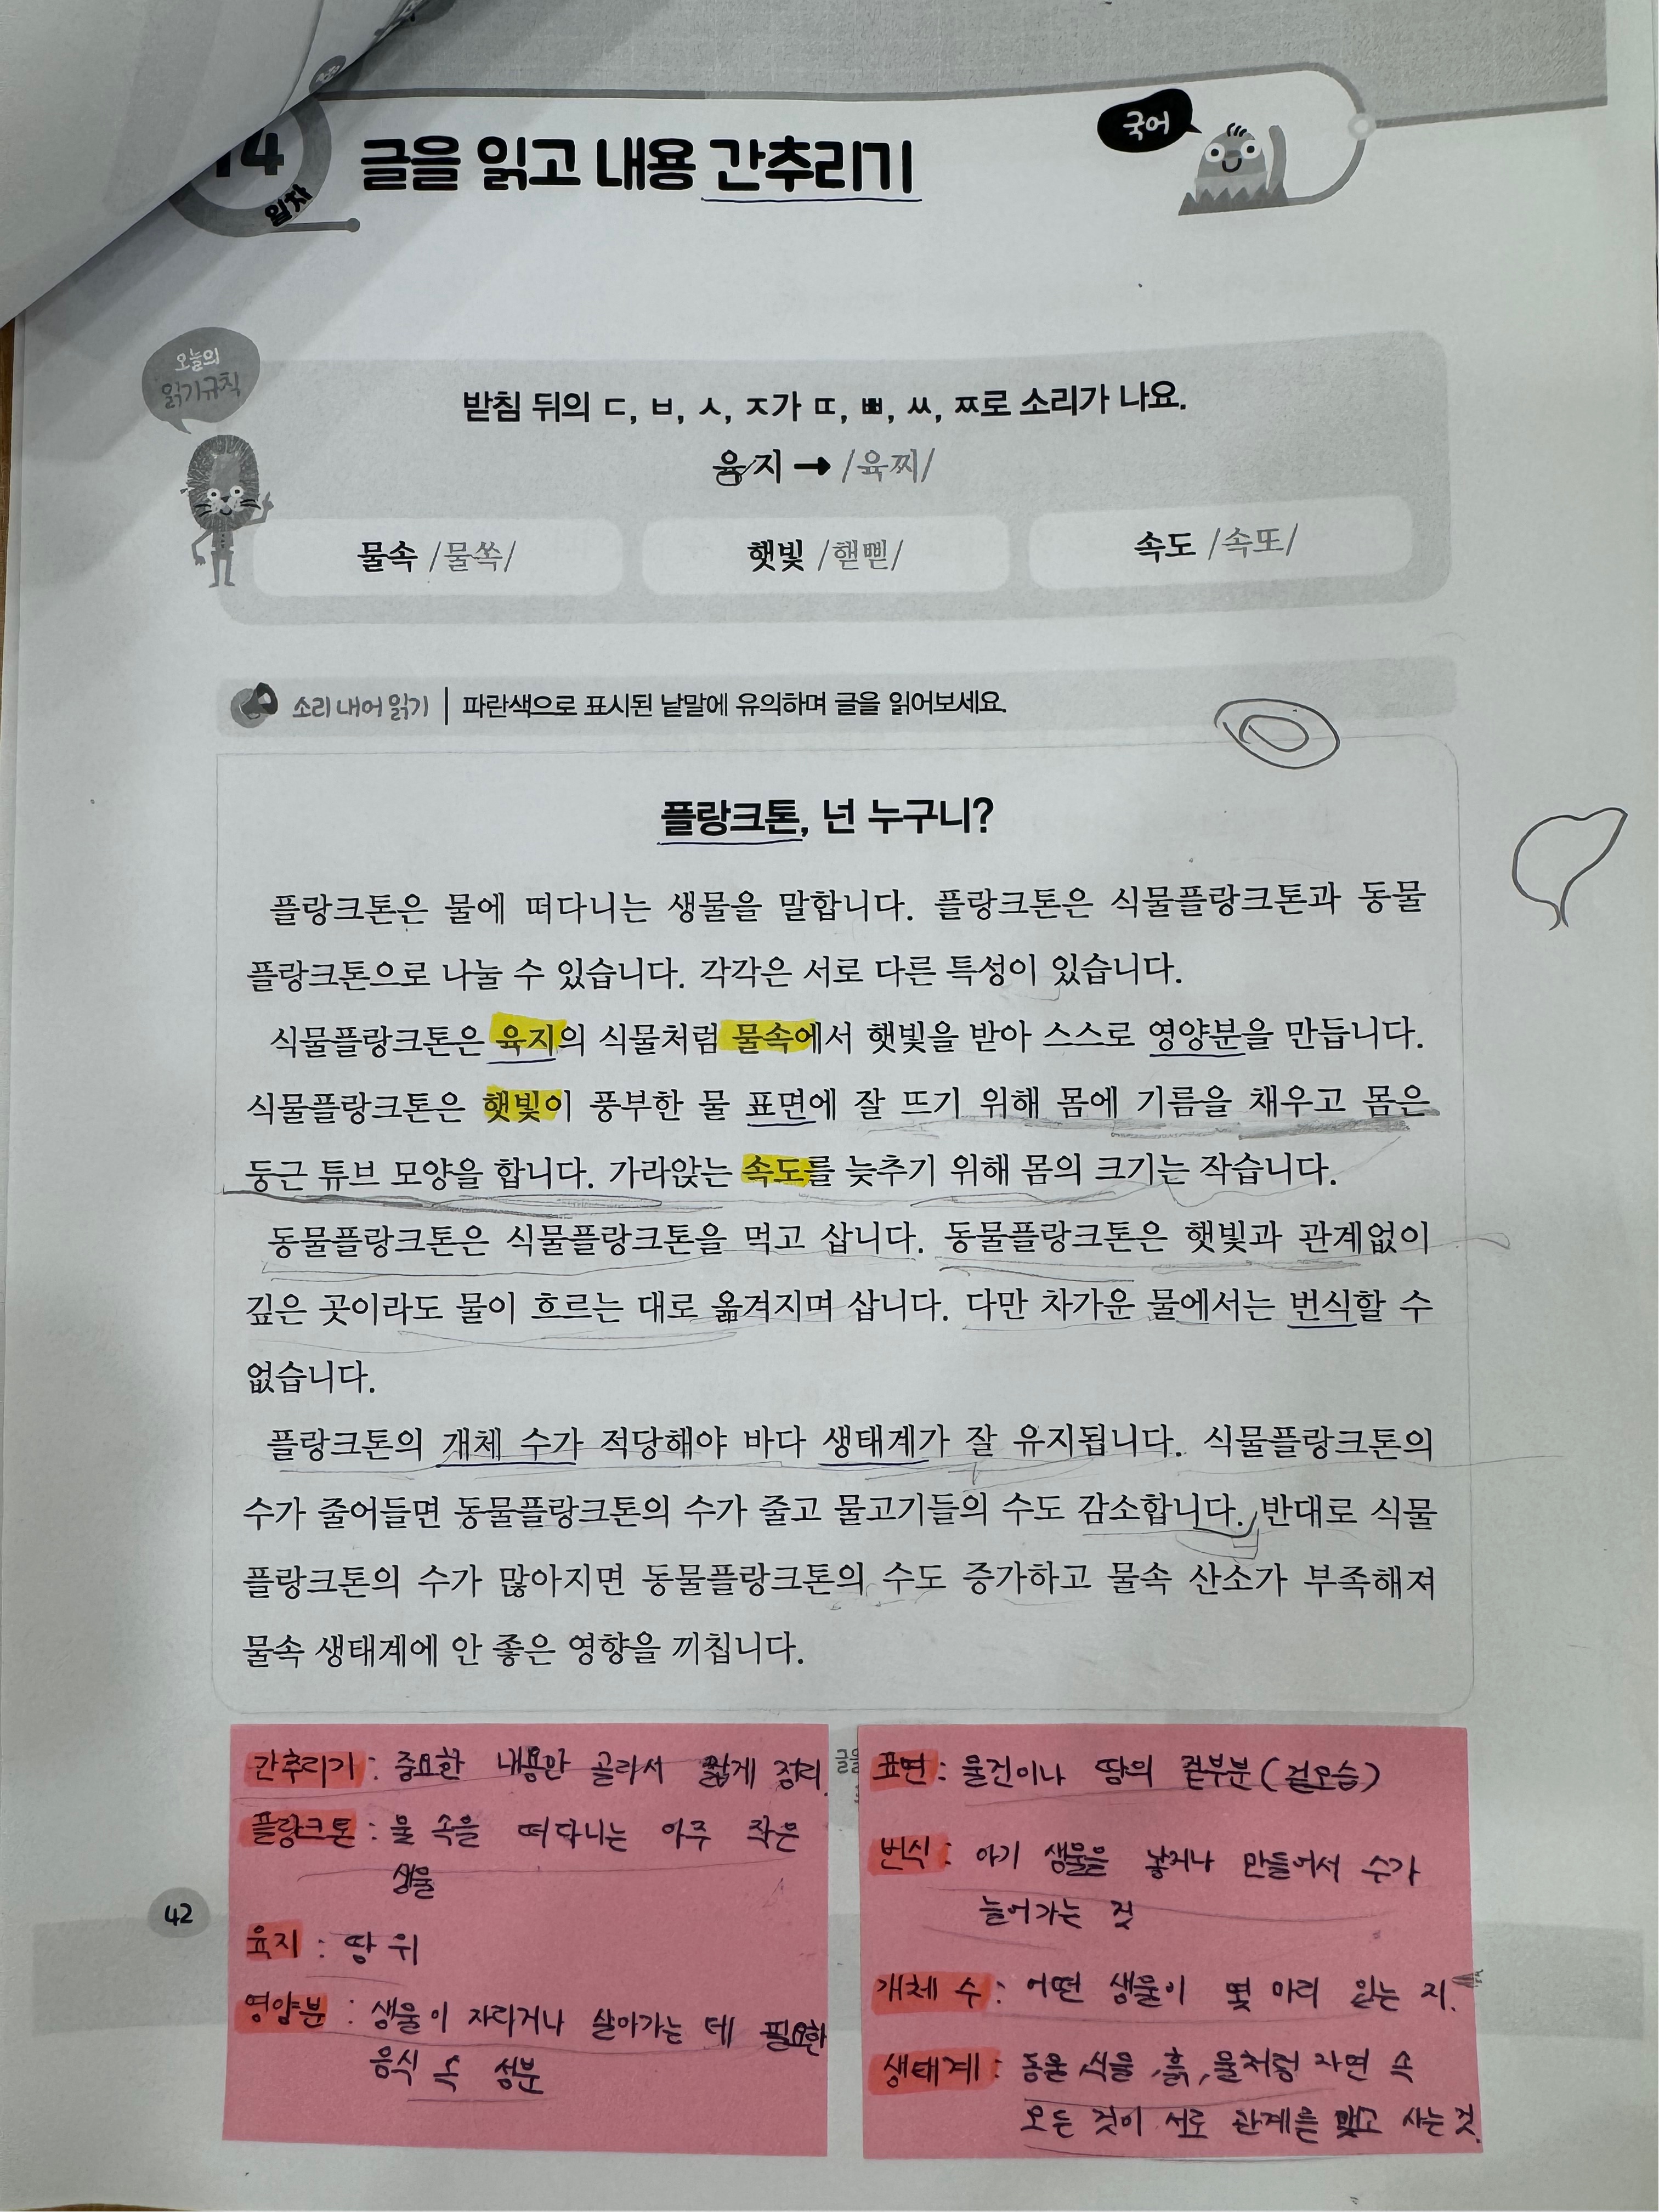 14
일차
글을 읽고 내용 간추리기
국어
오늘의
읽기규칙
받침 뒤의 ㄷ, ㅂ, ㅅ, ㅈ가 ㄸ, ㅃ, ㅆ, ㅉ로 소리가 나요.
육지 → /육찌/
물속 /물쏙/
햇빛 /핻삗/
속도 /속또/
소리 내어 읽기 | 파란색으로 표시된 낱말에 유의하며 글을 읽어보세요.
플랑크톤, 넌 누구니?
플랑크톤은 물에 떠다니는 생물을 말합니다. 플랑크톤은 식물플랑크톤과 동물
플랑크톤으로 나눌 수 있습니다. 각각은 서로 다른 특성이 있습니다.
식물플랑크톤은 육지의 식물처럼 물속에서 햇빛을 받아 스스로 영양분을 만듭니다.
식물플랑크톤은 햇빛이 풍부한 물 표면에 잘 뜨기 위해 몸에 기름을 채우고 몸은
둥근 튜브 모양을 합니다. 가라앉는 속도를 늦추기 위해 몸의 크기는 작습니다.
동물플랑크톤은 식물플랑크톤을 먹고 삽니다. 동물플랑크톤은 햇빛과 관계없이
깊은 곳이라도 물이 흐르는 대로 옮겨지며 삽니다. 다만 차가운 물에서는 번식할 수
없습니다.
플랑크톤의 개체 수가 적당해야 바다 생태계가 잘 유지됩니다. 식물플랑크톤의
수가 줄어들면 동물플랑크톤의 수가 줄고 물고기들의 수도 감소합니다. 반대로 식물
플랑크톤의 수가 많아지면 동물플랑크톤의 수도 증가하고 물속 산소가 부족해져
물속 생태계에 안 좋은 영향을 끼칩니다.
간추리기 : 중요한 내용만 골라서 짧게 정리.
플랑크톤 : 물 속을 떠다니는 아주 작은
생물
육지 : 땅 위
영양분 : 생물이 자라거나 살아가는 데 필요한
음식 속 성분
글을
표면 : 물건이나 땅의 겉부분 (겉모습)
번식 : 아기 생물을 낳거나 만들어서 수가
늘어가는 것
개체 수 : 어떤 생물이 몇 마리 있는 지.
생태계 : 동물, 식물, 흙, 물처럼 자연 속
모든 것이 서로 관계를 맺고 사는 것.
42